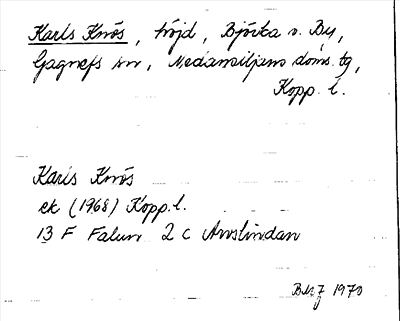 Karls Knös, höjd, Björka o. By,
Gagnefs sn, Nedansiljans doms. tg,
Kopp. l.
Karls Knös
ek (1968) Kopp. l.
13 F Falun 2 c Amslindan
1970